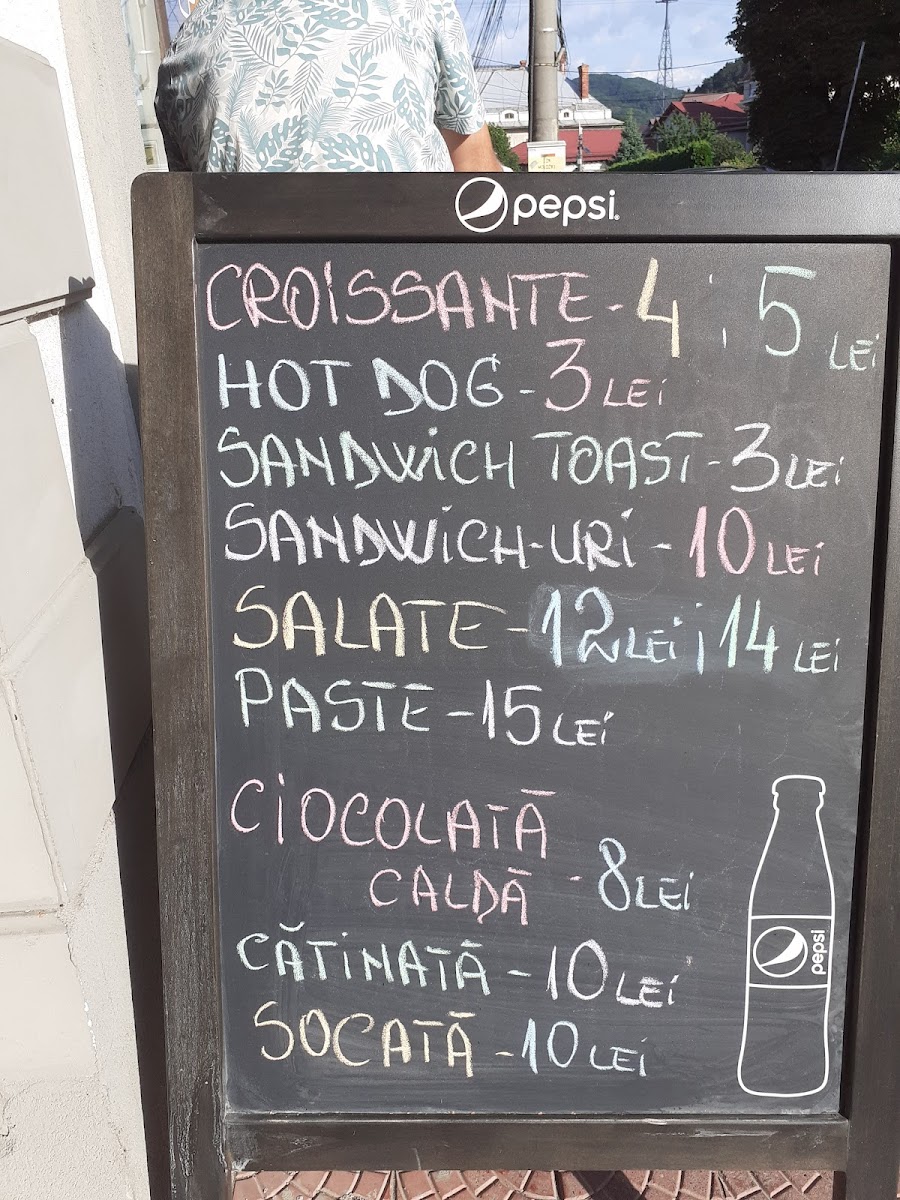 pepsi.
CROISSANTE - 4 ; 5 LEI
HOT DOG - 3 LEI
SANDWICH TOAST - 3 LEI
SANDWICH-URI - 10 LEI
SALATE - 12 LEI ; 14 LEI
PASTE - 15 LEI
CIOCOLATĂ
CALDĂ - 8 LEI
CĂTINATĂ - 10 LEI
SOCATĂ - 10 LEI
pepsi